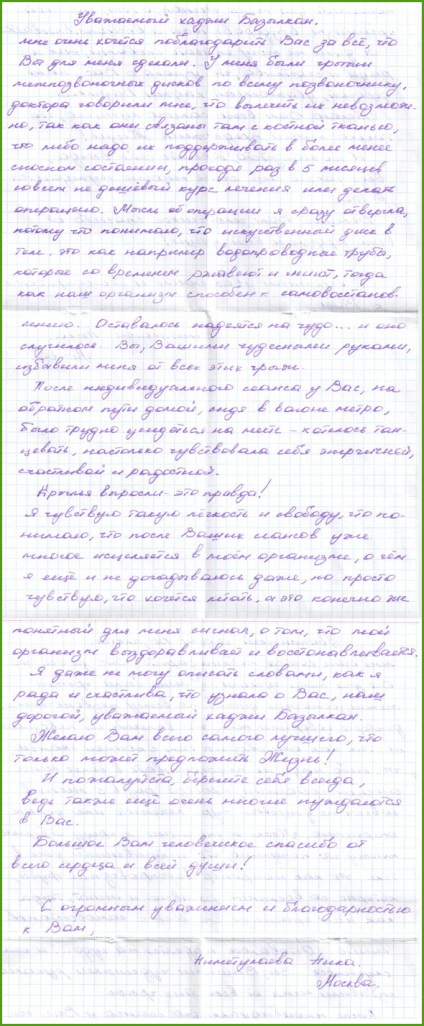 Уважаемый хаджи Базылкан.
мне очень хочется поблагодарить Вас за всё, что
Вы для меня сделали. У меня были грыжи
межпозвоночных дисков по всему позвоночнику.
доктора говорили мне, что вылечить их невозмож-
но, так как они связаны там с костной тканью,
что либо надо их поддерживать в более менее
сносном состоянии, проходя раз в 5 месяцев
совсем не дешёвый курс лечения или делать
операцию. Мысли об операции я сразу отвергла,
потому что понимаю, что искуственный диск в
теле. это как например водопроводные трубы,
которые со временем ржавеют и гниют, тогда
как наш организм способен к самовосстанов-
лению. Оставалось надеятся на чудо... и оно
случилось. Вы, Вашими чудесными руками,
избавили меня от всех этих грыж.
После индивидуального сеанса у Вас, на
обратном пути домой, сидя в вагоне метро,
было трудно усидеться на месте - хотелось тан-
цевать, настолько чувствовала себя энергичной,
счастливой и радостной.
Крылья выросли - это правда!
Я чувствую такую лёгкость и свободу, что по-
нимаю, что после Ваших сеансов уже
многое исцеляется в моём организме, о чём
я ещё и не догадываюсь даже, но просто
чувствую, что хочется летать, а это конечно же
понятный для меня сигнал, о том, что мой
организм выздоравливает и восстонавливается.
Я даже не могу описать словами, как я
рада и счастлива, что узнала о Вас, наш
дорогой, уважаемый хаджи Базылкан.
Желаю Вам всего самого лучшего, что
только может предложить Жизнь!
И пожалуйста, берегите себя всегда,
Ведь также ещё очень многие нуждаются
в Вас.
Большое Вам человеческое спасибо от
всего сердца и всей души!
С огромным уважением и благодарностью
к Вам,
Ника.
Москва.